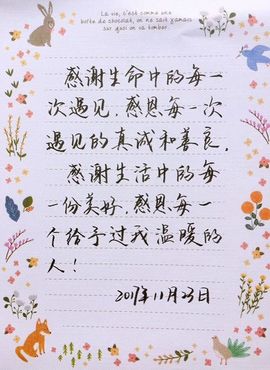 La vie, c'est comme une
boîte de chocolat, on ne sait jamais
sur quoi on va tomber.
感谢生命中的每一
次遇见,感恩每一次
遇见的真诚和善良。
感谢生活中的每
一份美好,感恩每一
个给予过我温暖的
人!
2017年11月23日